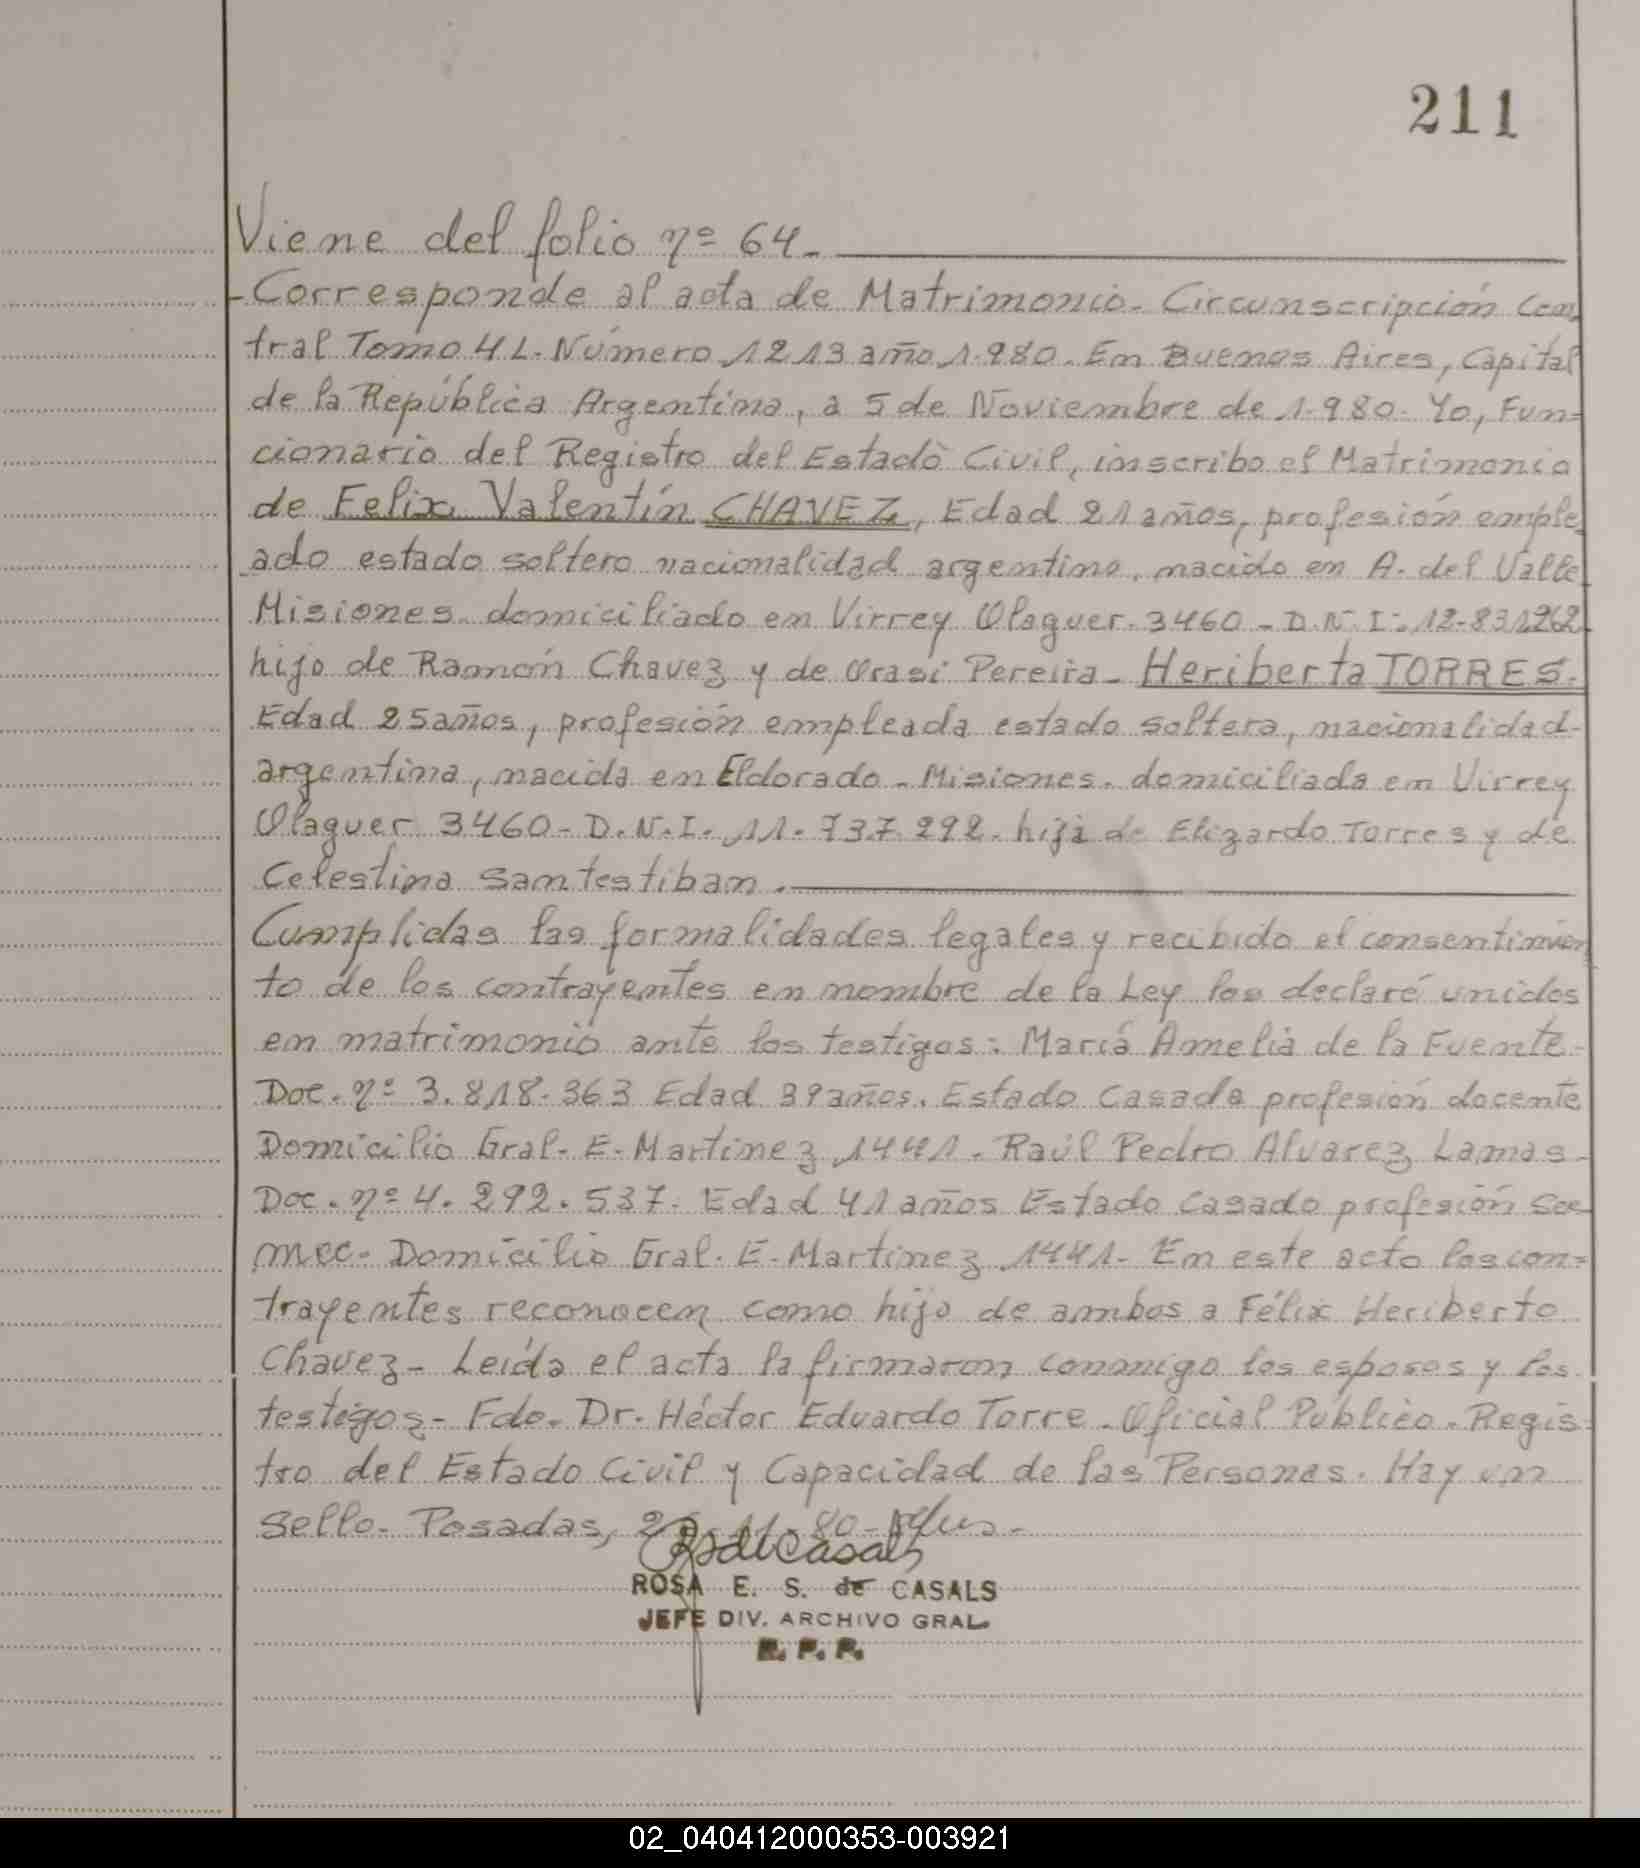 211
Viene del folio nº 64.
- Corresponde al acta de Matrimonio. Circunscripción Cen
tral Tomo 4 L. Número 1213 año 1.980. En Buenos Aires, Capital
de la República Argentina, a 5 de Noviembre de 1.980. Yo, Fun=
cionario del Registro del Estado Civil, inscribo el Matrimonio
de Felix Valentín CHAVEZ, Edad 21 años, profesión emple
ado estado soltero nacionalidad argentino, nacido en A. del Valle
Misiones. domiciliado en Virrey Olaguer. 3460 - D.N.I. 12-831262
hijo de Ramón Chavez y de Orasi Pereira - Heriberta TORRES.
Edad 25 años, profesión empleada estado soltera, nacionalidad
argentina, nacida en Eldorado - Misiones. domiciliada en Virrey
Olaguer 3460 - D.N.I. 11. 737.292. hija de Elizardo Torres y de
Celestina Santestiban.
Cumplidas las formalidades legales y recibido el consentimien
to de los contrayentes en nombre de la Ley los declaré unidos
en matrimonio ante los testigos: María Amelia de la Fuente-
Doc. nº 3.818.363 Edad 39 años. Estado Casada profesión docente
Domicilio Gral. E. Martinez 1441. Raúl Pedro Alvarez Lamas-
Doc. nº 4. 292. 537. Edad 41 años Estado casado profesión
mec. Domicilio Gral. E. Martinez 1441- En este acto los con=
trayentes reconocen como hijo de ambos a Félix Heriberto
Chavez - Leída el acta la firmaron conmigo los esposos y los
testigos - Fdo. Dr. Héctor Eduardo Torre. Oficial Público. Regis=
tro del Estado Civil y Capacidad de las Personas. Hay un
sello. Posadas, 80 -
ROSA E. S. de CASALS
JEFE DIV. ARCHIVO GRAL.
R. P. P.
02_040412000353-003921